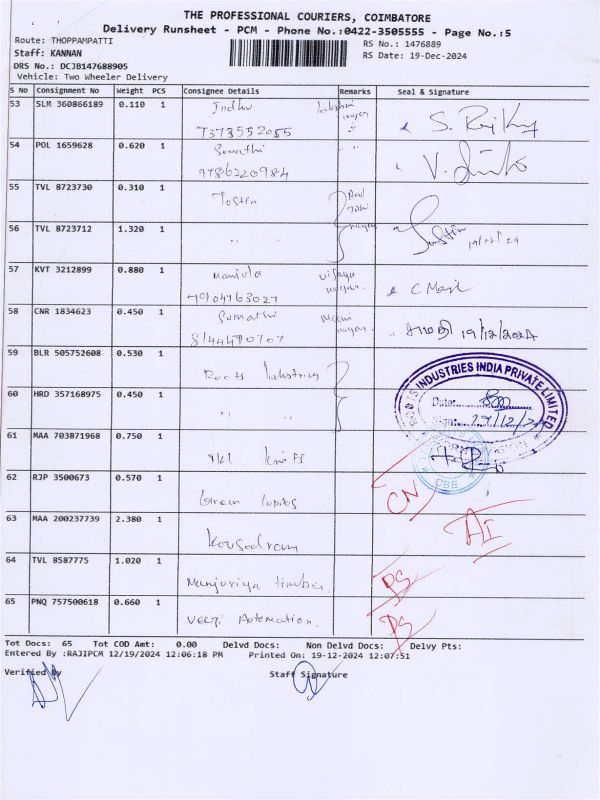 THE PROFESSIONAL COURIERS, COIMBATORE
Delivery Runsheet - PCM - Phone No.:0422-3505555 - Page No.:5
Route: THOPPAMPATTI
RS No.: 1476889
Staff: KANNAN
RS Date: 19-Dec-2024
DRS No.: DCJB147688905
Vehicle: Two Wheeler Delivery
S No Consignment No Weight PCS Consignee Details Remarks Seal & Signature
53 SLM 360866189 0.110 1 Indhu
7373552055
54 POL 1659628 0.620 1 Sumathi
9786220984
55 TVL 8723730 0.310 1 Tostin
56 TVL 8723712 1.320 1 " "
19/12/24
57 KVT 3212899 0.880 1 Manjula
7904763027
58 CNR 1834623 0.450 1 Sumathi 19/12/2024
59 BLR 505752608 0.530 1 Roots Industries
ROOTS INDUSTRIES INDIA PRIVATE LIMITED
60 HRD 357168975 0.450 1 " "
Date:
Sign:
61 MAA 703871968 0.750 1
CBE
62 RJP 3500673 0.570 1 Green
CN
63 MAA 200237739 2.380 1
AI
64 TVL 8587775 1.020 1 Manjuriya timber
PS
65 PNQ 757500618 0.660 1 Veeji Automation.
PS
Tot Docs: 65 Tot COD Amt: 0.00 Delvd Docs: Non Delvd Docs: Delvy Pts:
Entered By :RAJIPCM 12/19/2024 12:06:18 PM Printed On: 19-12-2024 12:07:51
Verified By Staff Signature